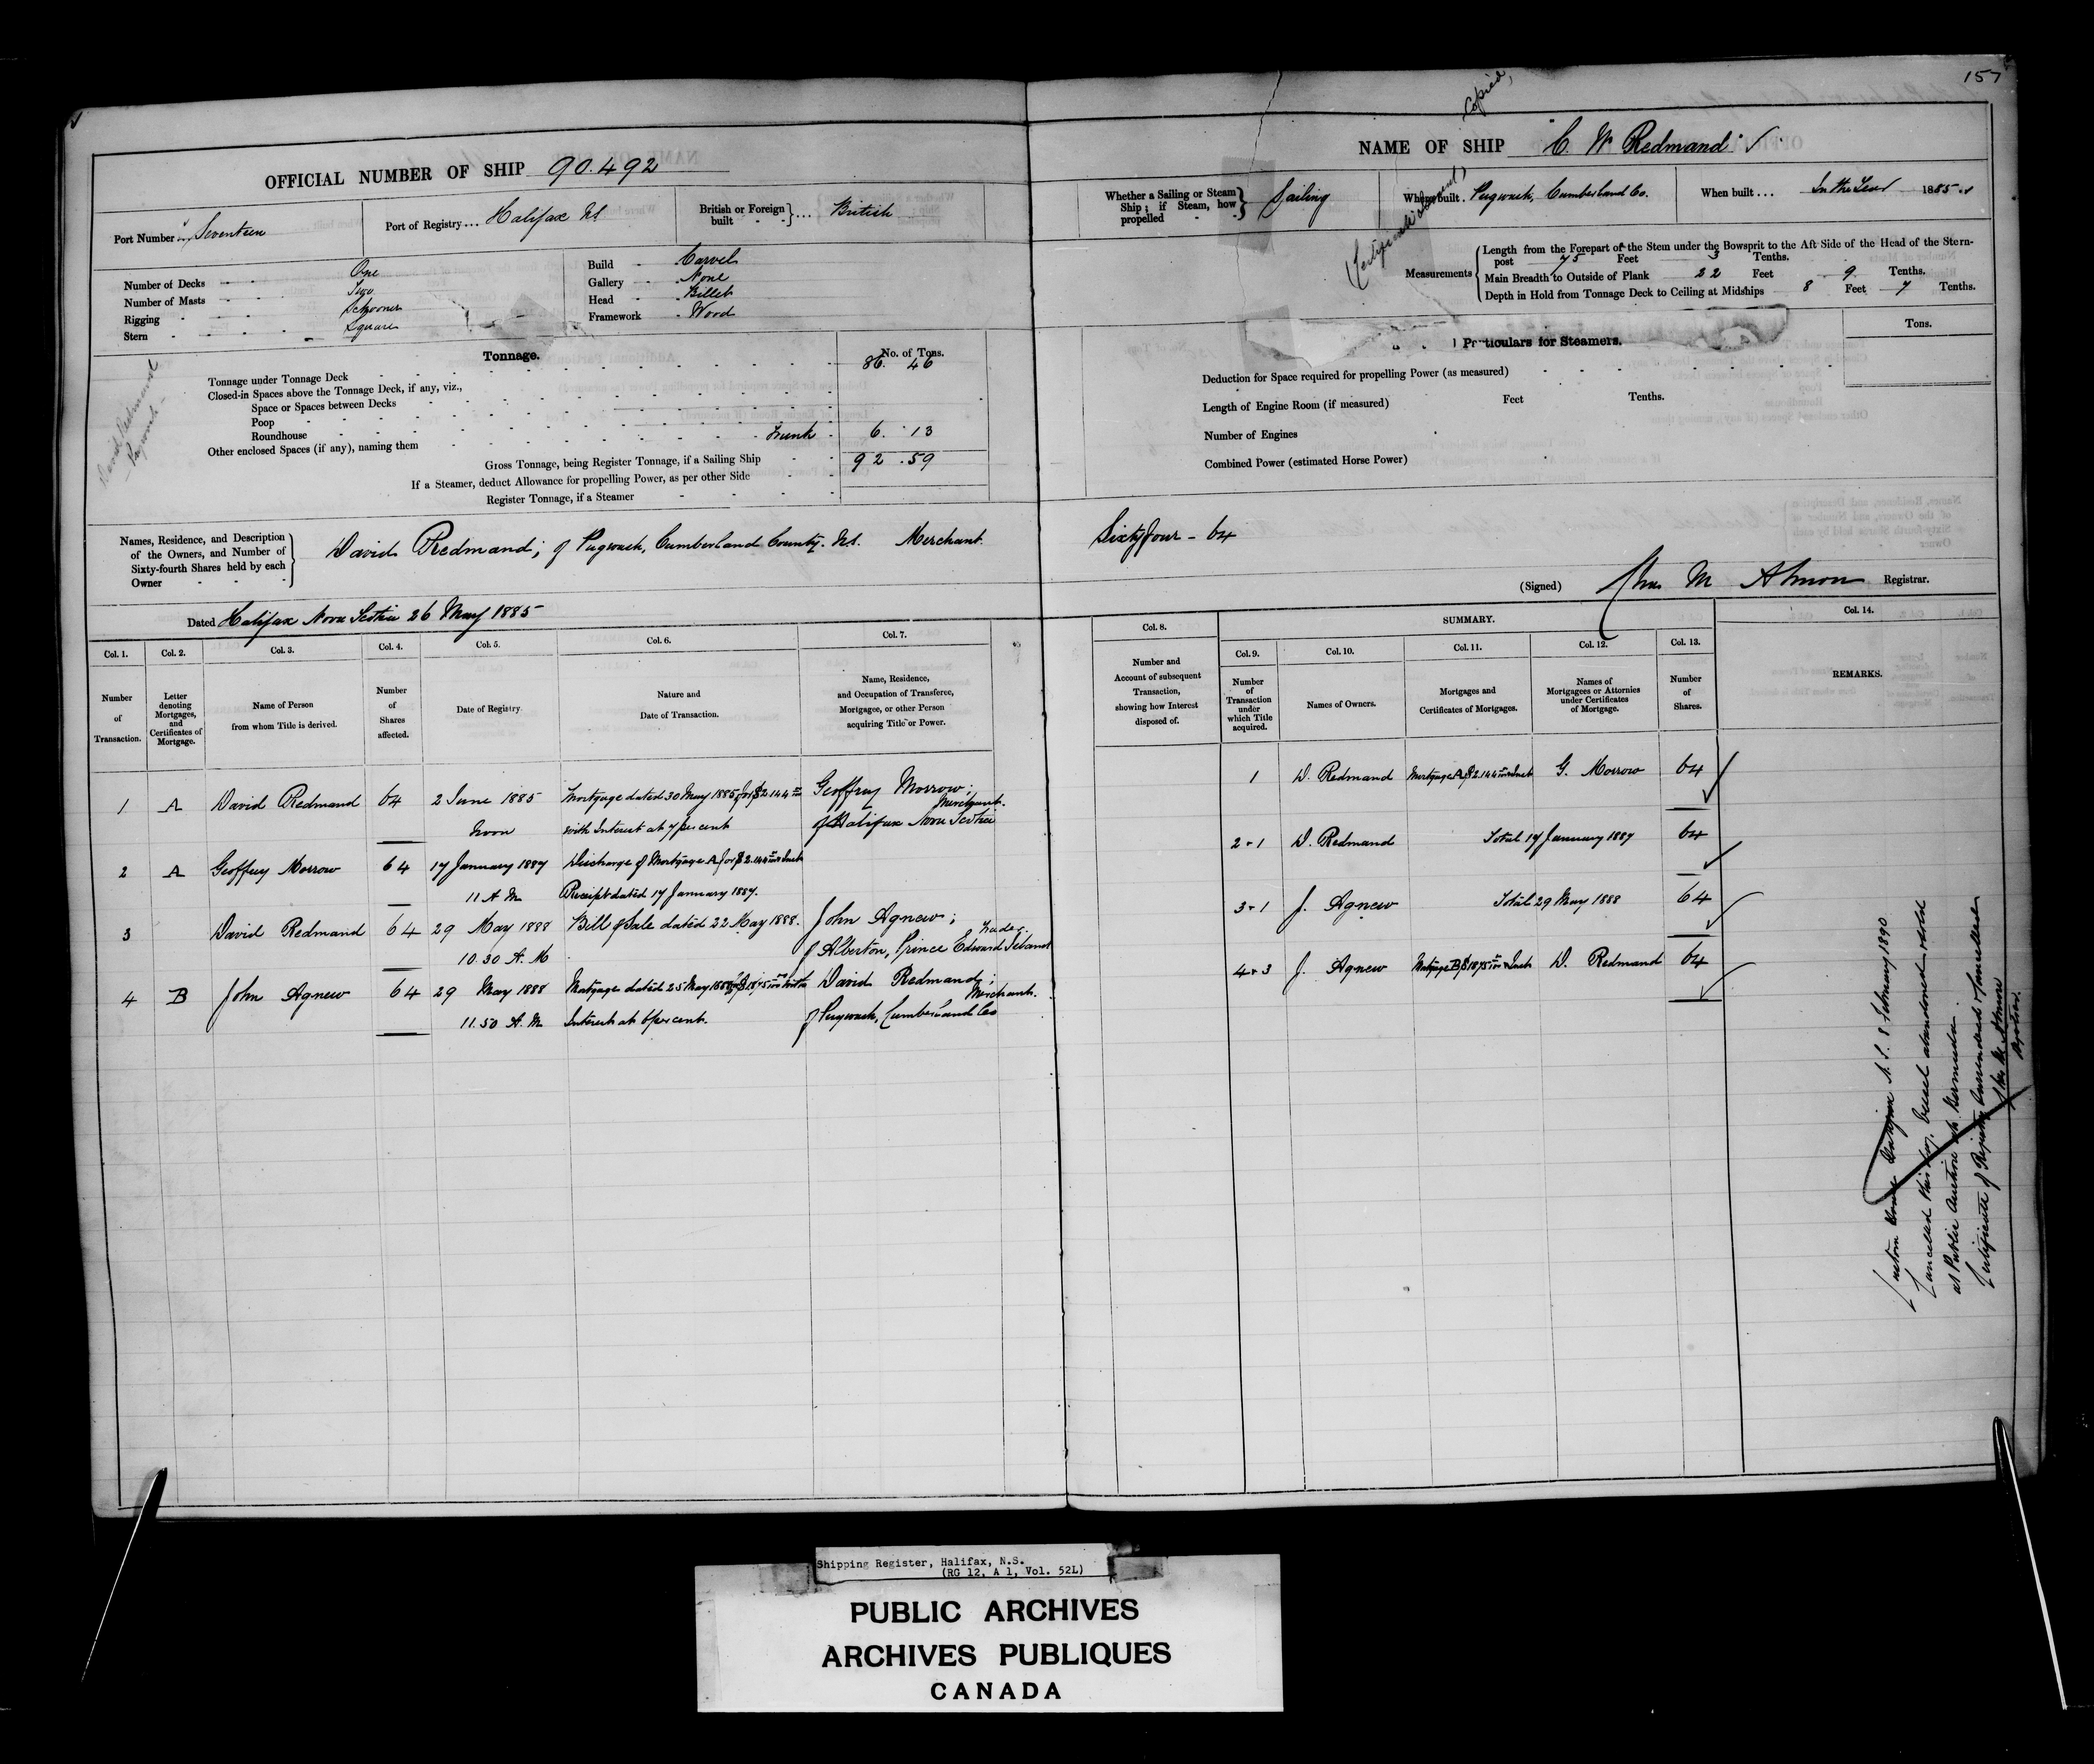 157
Copied,
OFFICIAL NUMBER OF SHIP 90.492
Port Number Seventeen
Port of Registry... Halifax NS
British or Foreign built } ... British
Number of Decks - One
Number of Masts - Two
Rigging - Schooner
Stern - Square
Build - Carvel
Gallery - None
Head - Billet
Framework - Wood
Tonnage.
No. of Tons.
Tonnage under Tonnage Deck 86. 46
Closed-in Spaces above the Tonnage Deck, if any, viz.,
Space or Spaces between Decks
Poop
Roundhouse
Other enclosed Spaces (if any), naming them - Trunk - 6. 13
Gross Tonnage, being Register Tonnage, if a Sailing Ship 92.59
If a Steamer, deduct Allowance for propelling Power, as per other Side
Register Tonnage, if a Steamer
David Redmand
Pugwash
Names, Residence, and Description of the Owners, and Number of Sixty-fourth Shares held by each Owner
David Redmand; of Pugwash, Cumberland County. NS. Merchant.
Dated Halifax Nova Scotia 26 May 1885
NAME OF SHIP "C. W. Redmand"
Whether a Sailing or Steam Ship; if Steam, how propelled } Sailing
Where built. Pugwash, Cumberland Co.
When built... In the Year 1885
Measurements
Length from the Forepart of the Stem under the Bowsprit to the Aft Side of the Head of the Stern-
post 75 Feet 3 Tenths.
Main Breadth to Outside of Plank 22 Feet 9 Tenths.
Depth in Hold from Tonnage Deck to Ceiling at Midships 8 Feet 7 Tenths.
Particulars for Steamers.
Tons.
Deduction for Space required for propelling Power (as measured)
Length of Engine Room (if measured) Feet Tenths.
Number of Engines
Combined Power (estimated Horse Power)
Sixty four - 64
(Signed) Chas M Almon Registrar.
Col. 1. Col. 2. Col. 3. Col. 4. Col. 5. Col. 6. Col. 7.
Number of Transaction.
Letter denoting Mortgages, and Certificates of Mortgage.
Name of Person from whom Title is derived.
Number of Shares affected.
Date of Registry.
Nature and Date of Transaction.
Name, Residence, and Occupation of Transferee, Mortgagee, or other Person acquiring Title or Power.
1 A David Redmand 64 2 June 1885 Mortgage dated 30 May 1885 for $2144 Geoffrey Morrow;
Noon with Interest at 7 per cent of Halifax Nova Scotia Merchant.
2 A Geoffrey Morrow 64 17 January 1887 Discharge of Mortgage A for $2.144 & Int
11 A M Receipt dated 17 January 1887.
3 David Redmand 64 29 May 1888 Bill of Sale dated 22 May 1888. John Agnew;
10.30 A. M of Alberton, Prince Edward Island Trader.
4 B John Agnew 64 29 May 1888 Mortgage dated 25 May 1888 for $1875 with David Redmand;
11.50 A. M Interest at 6 per cent. of Pugwash, Cumberland Co Merchant.
Col. 8.
Number and Account of subsequent Transaction, showing how Interest disposed of.
SUMMARY.
Col. 9. Col. 10. Col. 11. Col. 12. Col. 13. Col. 14.
Number of Transaction under which Title acquired.
Names of Owners.
Mortgages and Certificates of Mortgages.
Names of Mortgagees or Attornies under Certificates of Mortgage.
Number of Shares.
REMARKS.
1 D. Redmand Mortgage A $2.144 & Int G. Morrow 64
2 + 1 D. Redmand Total 17 January 1887 64
3 + 1 J. Agnew Total 29 May 1888 64
4 + 3 J. Agnew Mortgage B $1875 & Int D. Redmand 64
Custom House Halifax N. S. 8 February 1890
Cancelled this day, Vessel abandoned & sold
at Public Auction at Bermuda.
Certificate of Registry Surrendered & Cancelled
Chas M. Almon
Registrar.
Shipping Register, Halifax, N.S.
(RG 12, A 1, Vol. 52L)
PUBLIC ARCHIVES
ARCHIVES PUBLIQUES
CANADA